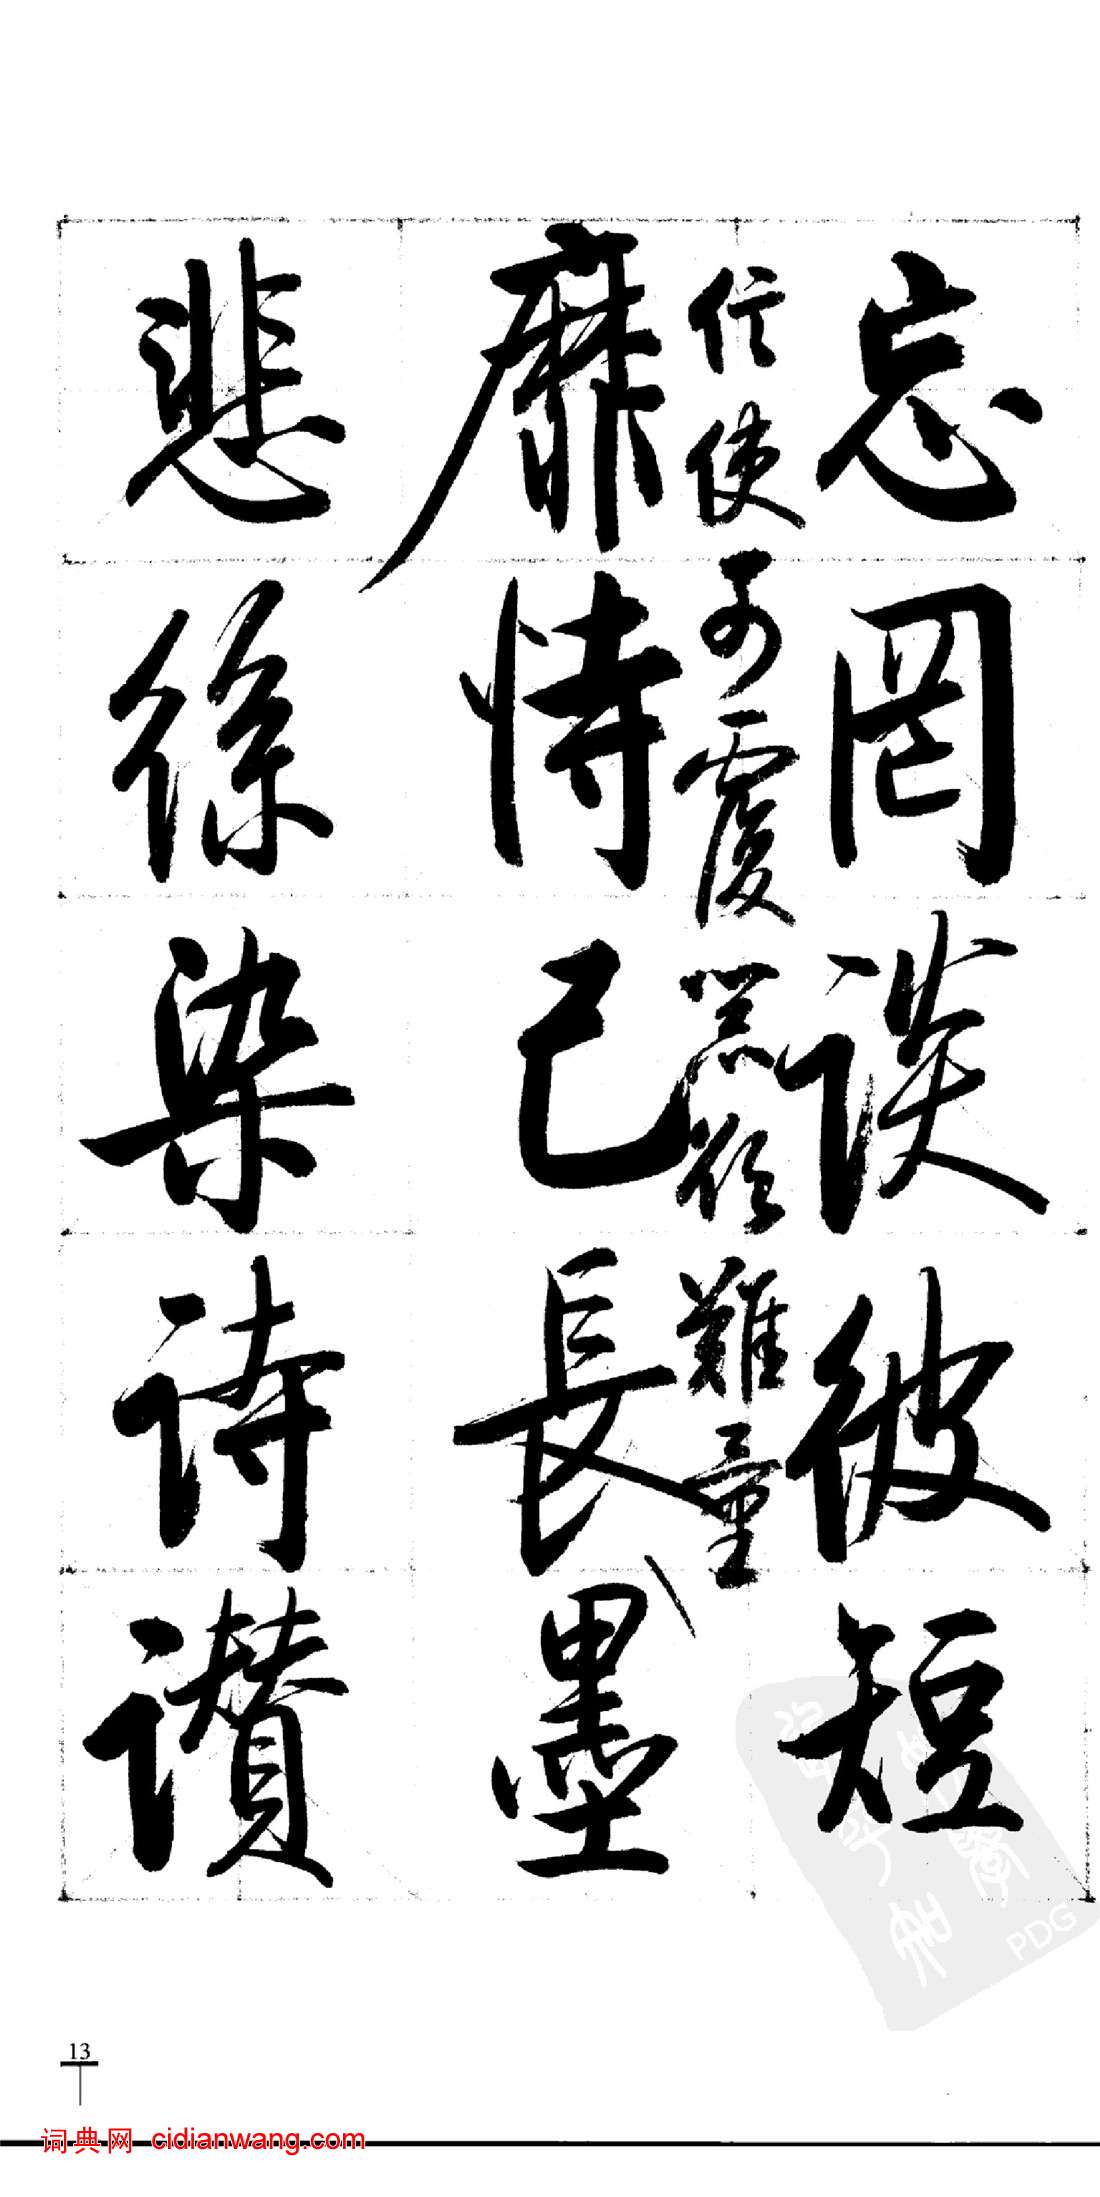 忘罔談彼短
信使可覆器欲難量
靡恃己長墨
悲絲染詩讚
13
词典网 cidianwang.com
PDG